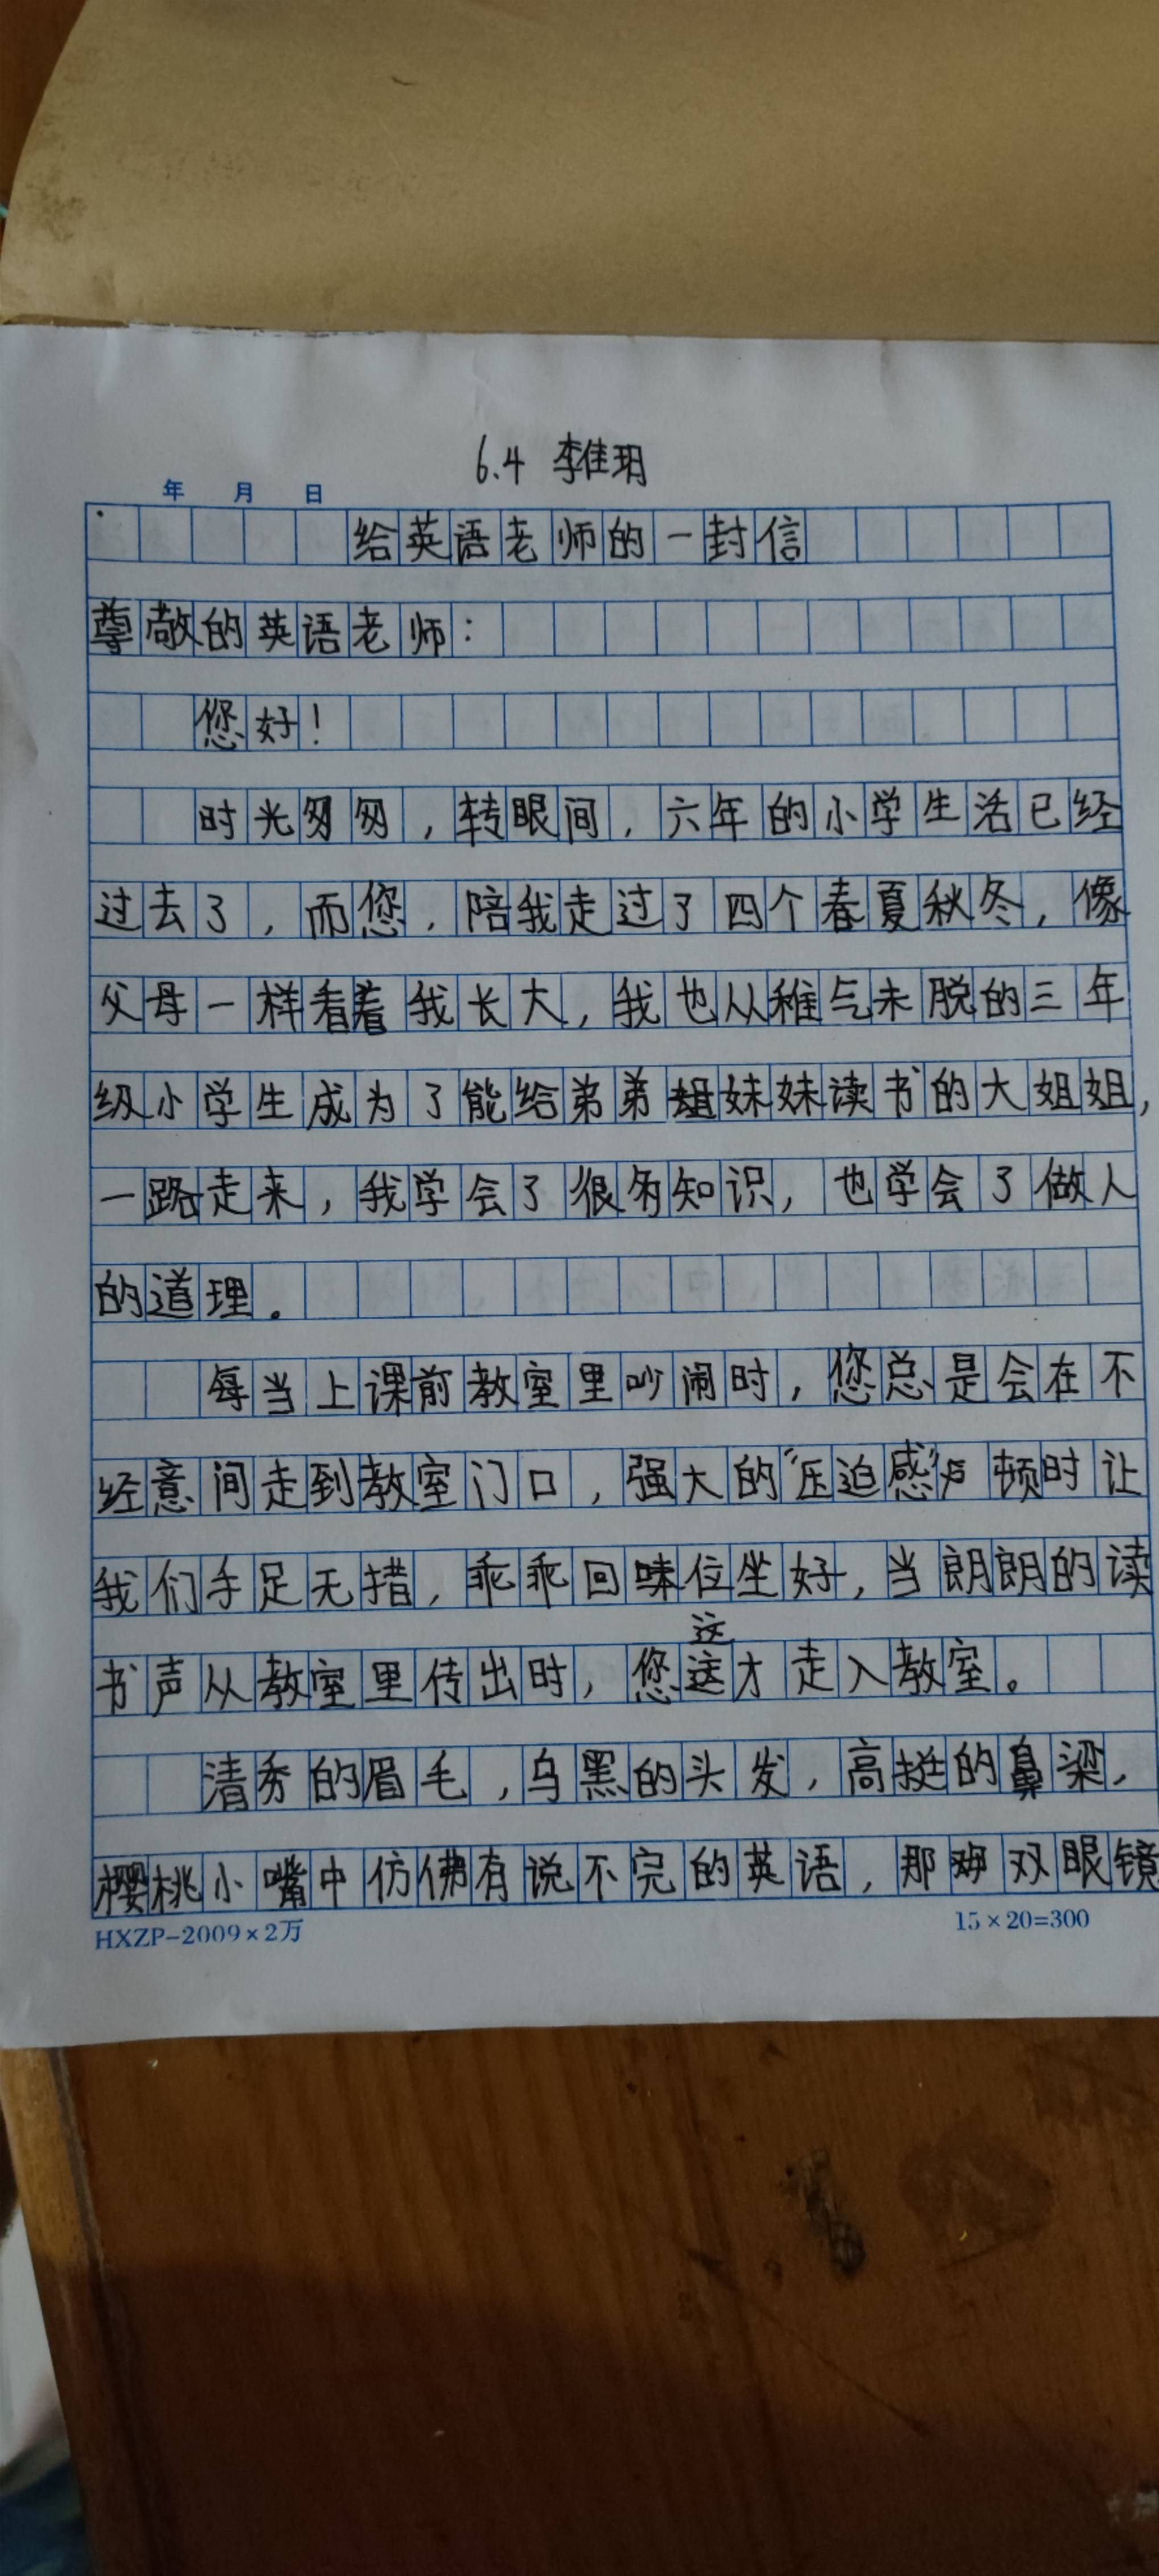 6.4 李佳玥
年 月 日
给英语老师的一封信
尊敬的英语老师：
您好！
时光匆匆，转眼间，六年的小学生活已经
过去了，而您，陪我走过了四个春夏秋冬，像
父母一样看着我长大，我也从稚气未脱的三年
级小学生成为了能给弟弟妹妹读书的大姐姐，
一路走来，我学会了很多知识，也学会了做人
的道理。
每当上课前教室里吵闹时，您总是会在不
经意间走到教室门口，强大的“压迫感”顿时让
我们手足无措，乖乖回位坐好，当朗朗的读
这
书声从教室里传出时，您这才走入教室。
清秀的眉毛，乌黑的头发，高挺的鼻梁，
樱桃小嘴中仿佛有说不完的英语，那双眼镜
HXZP-2009×2万
15×20=300